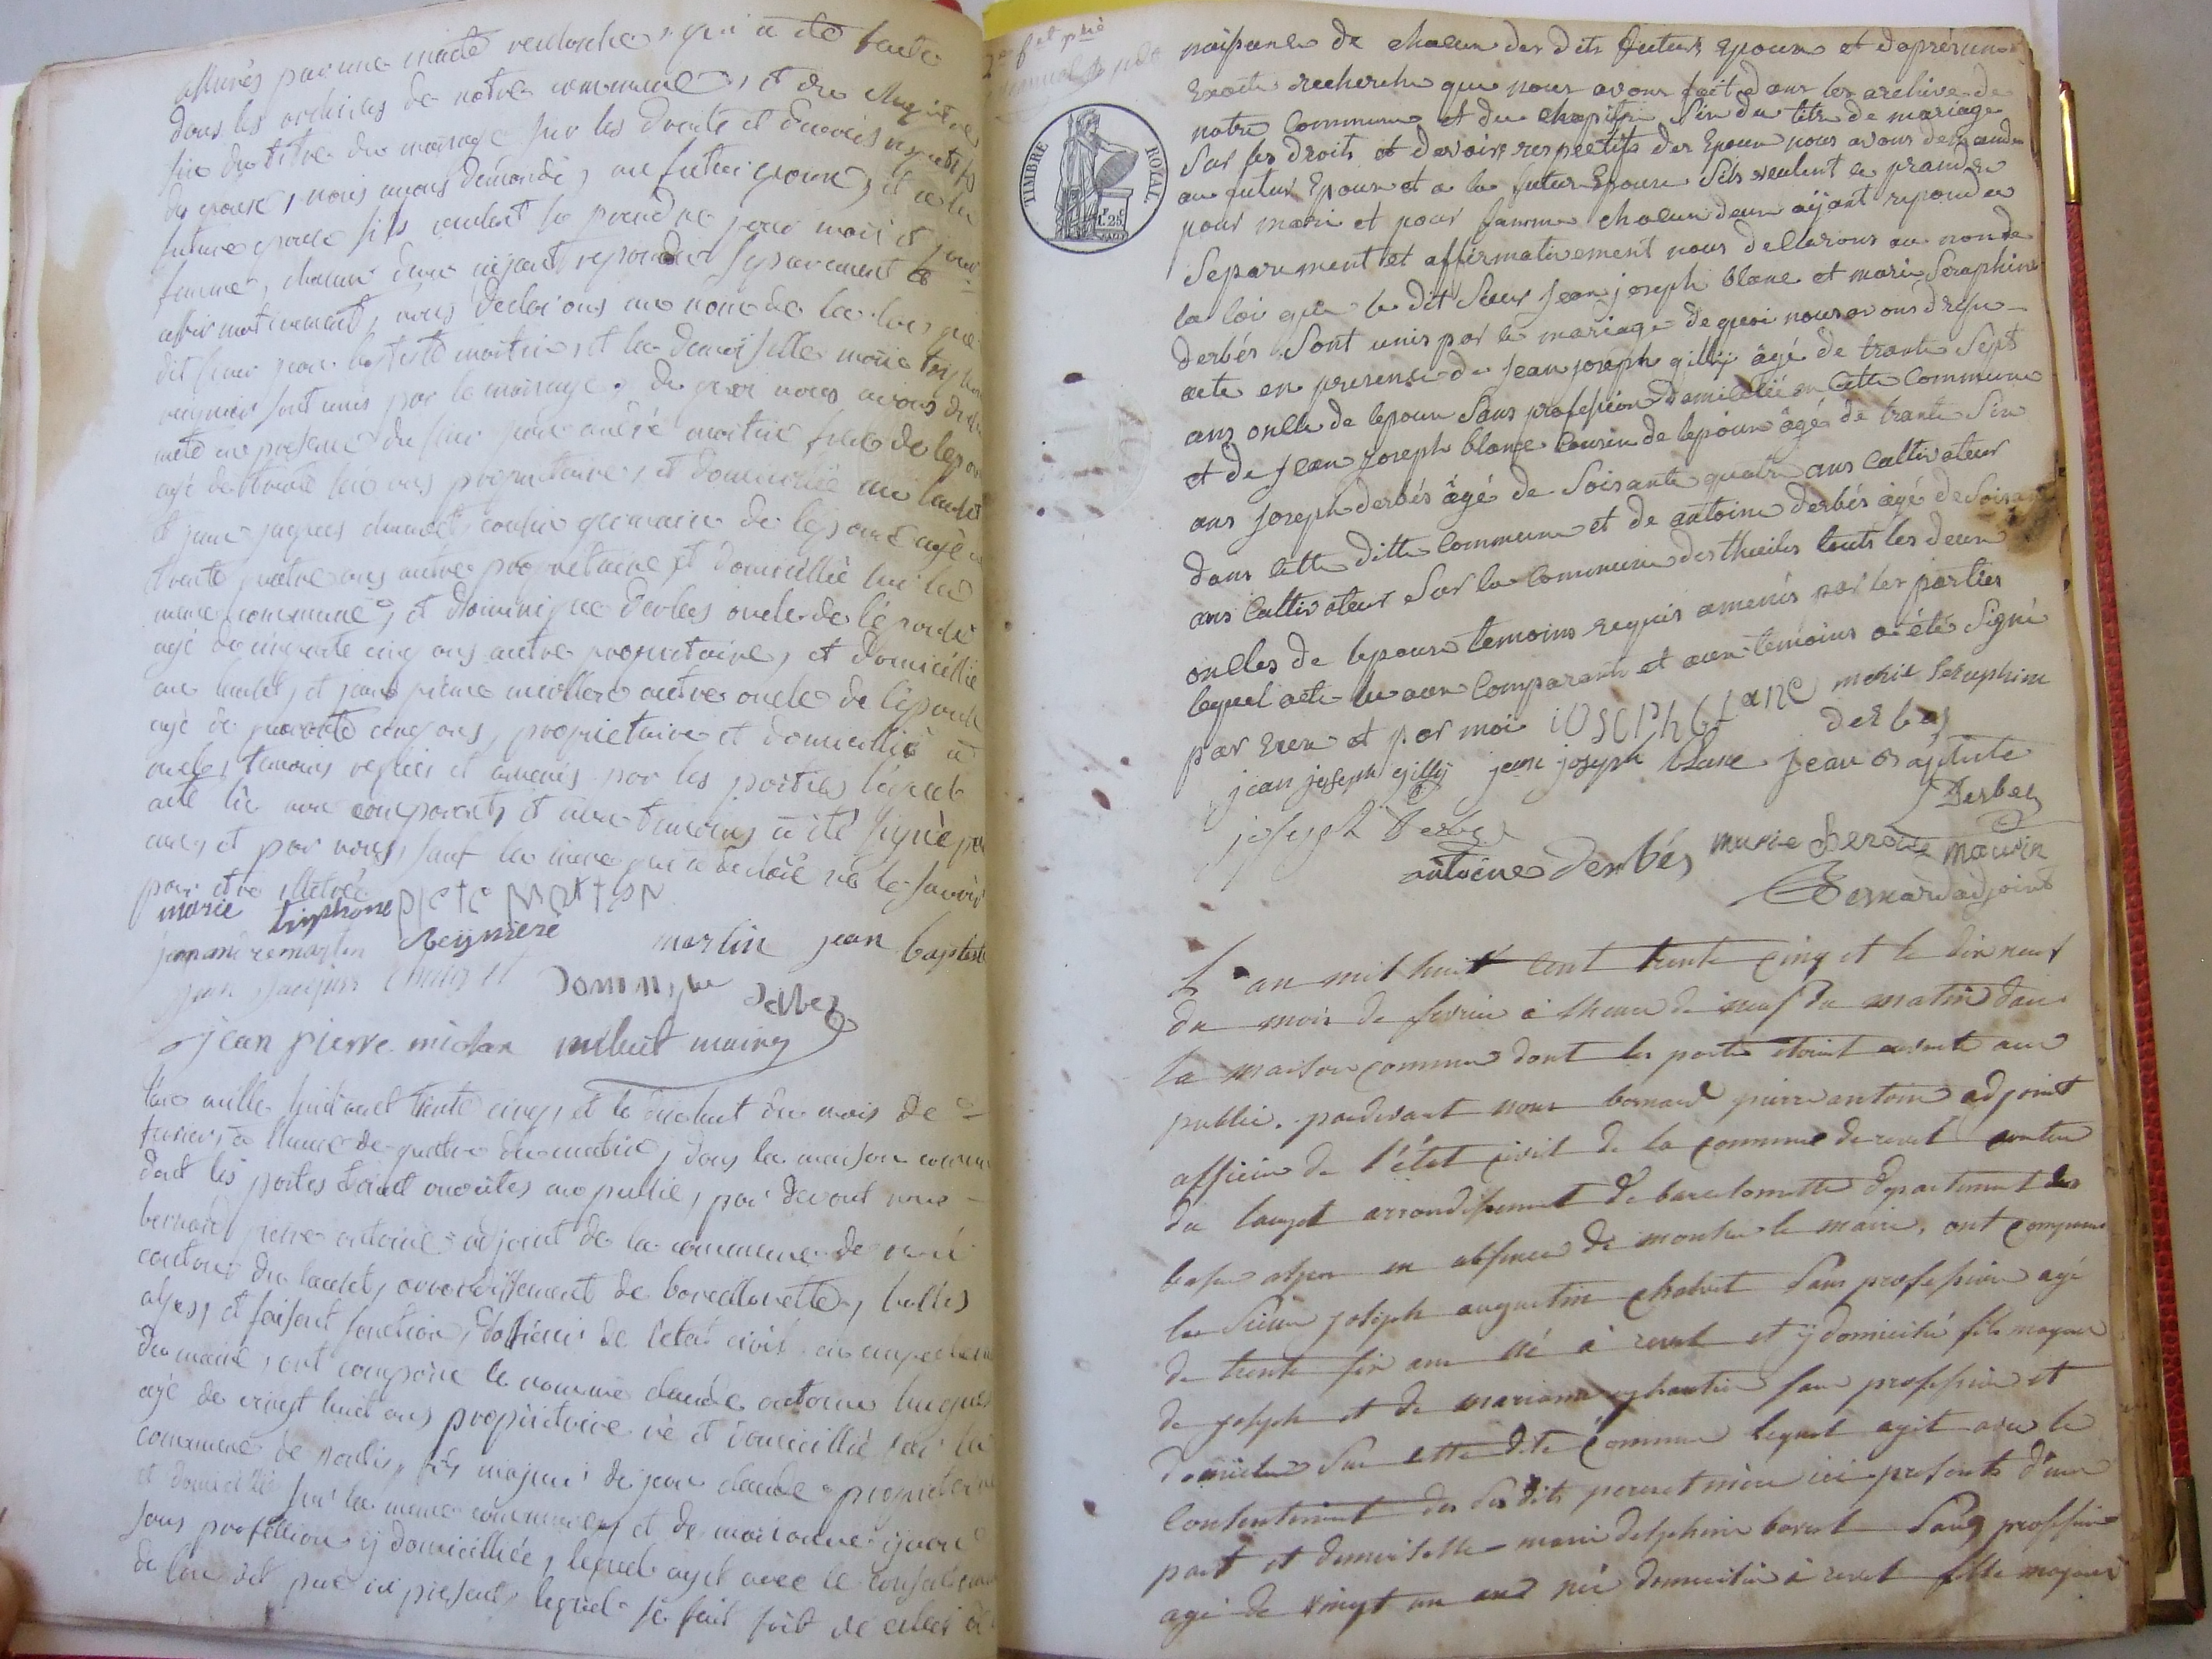 assurés par une exacte recherche, qui a été faite
dans les archives de notre commune, et du chapitre
six du titre du mariage sur les droits et devoirs respectifs
des époux, nous avons demandé, au futur époux, et a la
future epouse s'ils veulent se prendre pour mari et pour
femme, chacun deux aijant repondu separement et
affirmativement, nous declarons au nom de la loi que
dit sieur jean baptiste martin, et la demoiselle marie
sont unis par le mariage. de quoi nous avons
acte en presence du sieur jean andré martin frere de
agé de trente six ans proprietaire, et domicillié au lauzet
et jean jaques cousin germain de l'epouse agé
trente quatre ans autre proprietaire et domicillié sur la
meme commune, et dominique derbes oncle de l'epouse
agé de cinquante cinq ans autre proprietaire, et domicillié
au lauzet, et jean pierre autre oncle de l'epouse
agé de quarante cinq ans, proprietaire et domicillié a
temoins requis et amenés par les parties lequel
acte lu aux comparants et aux temoins a été signé par
eux, et par nous, sauf la mere qui a declaré ne le savoir
pour etre illetrée
marie triphone piete martin
jean andre martin Reynieré martin jean baptiste
jean jacques Dominique derbez
jean pierre maire
L'an mille huit cent trente cinq, et le dixhuit du mois de
fevrier, à l'heure de quatre du matin, dans la maison
dont les portes etoint ouvertes au public, par devant nous
bernard pierre antoine adjoint de la commune de
canton du lauzet, arrondissement de barcellonette, basses
alpes, et faisant fonction, d'officier de l'etat civil
du maire, ont comparu le nommé claude antoine
agé de vingt huit ans proprietaire né et domicillié sur la
commune de fils majeur de jean claude proprietaire
et domicillié sur la meme commune, et de marianne
sans profession ij domicilliée, lequel agit avec le
de son dit pere ici present, lequel se fait fort de celui de
naissance de chacun des dits futurs Epoux et daprés une
Exacte recherche que nous avons fait dans les archives de
notre Commune et du chapitre Six du titre de mariage
Sur les droits et devoirs respectifs des Epoux nous avons demandé
au futur Epoux et a la futur Epouse Sils veulent se prandre
pour mari et pour famme chacun deux aijant repondu
Separement et affirmativement nous dellarons au nom de
la loi que le dit Sieur Jean joseph blanc et marie Seraphine
derbés Sont unis par le mariage de quoi nous avons dressé
acte en presense de Jean joseph gillij âgé de trante Sept
ans oncle de lepoux Sans profession domicilié en Cette Commune
et de Jean Joseph blanc Cousin de lepoux âgé de trante Six
ans Joseph derbés âgé de Soisante quatre ans Caltivateur
dans Cette ditte Commune et de antoine derbés âgé de Soisante
ans Caltivateur Sur la Commune des thuiles touts les deux
oncles de lepouse temoins requis amenés par les parties
lequel acte lu aux Comparants et aux temoins a été Signé
par Eux et par moi iosephblanc marie Seraphine
derbes
jean joseph gillij jean joseph blanc Jean Baptiste
Derbez
joseph Derbes
antoine Derbés marie maurin
Bernard adjoint
L'an mil huit cent trente cinq et le dix neuf
du mois de fevrier à l'heure de neuf du matin dans
la maison commune dont les portes étoint ouverte aux
public. pardevant nous bernard pierre antoine adjoint
officier de l'état civil de la commune de revel canton
du lauzet arrondissement de barcelonnette département des
basse alpes en absence de monsieur le maire, ont comparu
le Sieur joseph augustin Sans profession agé
de trente six ans né à revel et ij domicilié fils majeur
de joseph et de marianne sans profession et
domicilié Sur cette dite commune lequel agit avec le
Consentement des Susdits pere et mere ici presents d'une
part et demoiselle marie delphine Sans profession
agé de vingt un ans née domicilié à revel fille majeure
TIMBRE ROYAL